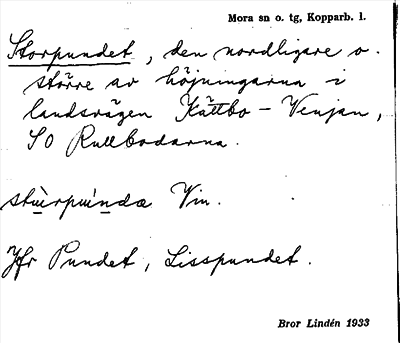 Mora sn o. tg, Kopparb. l.
Storpundet, den nordligare o.
större av höjningarna i
landsvägen Kättbo - Venjan,
SO Rullbodarna.
stùrpùndæ Vin.
Jfr Pundet, Lisspundet.
Bror Lindén 1933